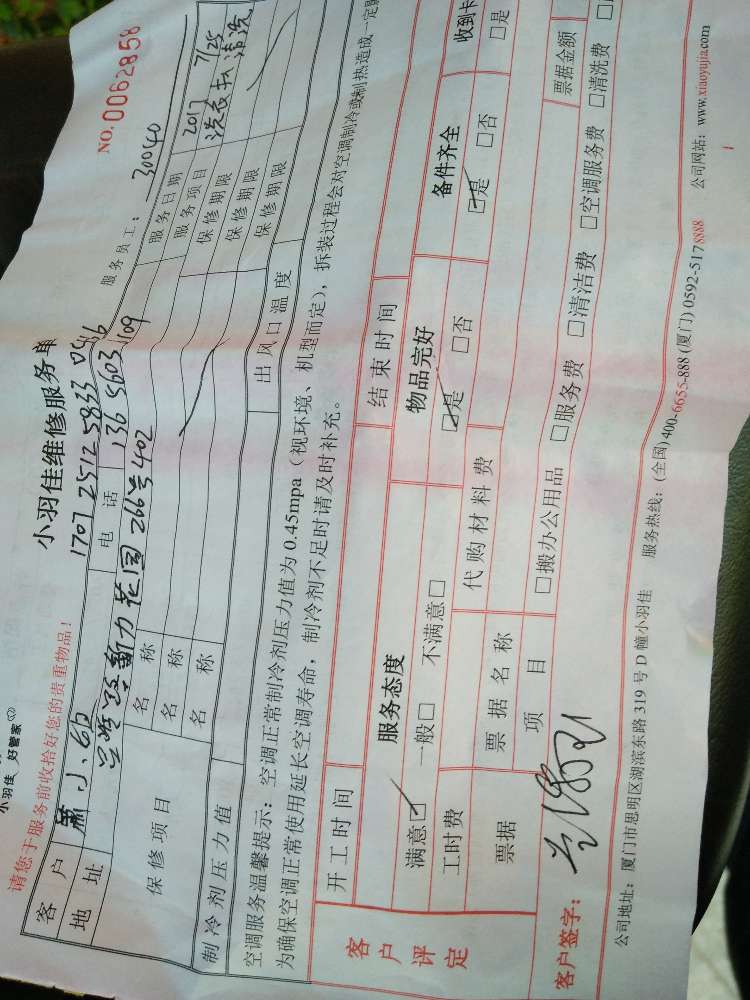 小羽佳 好管家
请您于服务前收拾好您的贵重物品!
小羽佳维修服务单
NO. 0062858
1707 2512 5833 0416
服务员工: 30040
客户 萧小 电话 136 5603 1109
服务日期 2017 7/25
地址 新力花园 266号402
服务项目 洗衣机清洗
保修项目
名称 保修期限
名称 保修期限
名称 保修期限
制冷剂压力值 出风口温度
空调服务温馨提示: 空调正常制冷剂压力值为 0.45mpa (视环境、机型而定), 拆装过程会对空调制冷或制热造成一定
为确保空调正常使用延长空调寿命, 制冷剂不足时请及时补充。
客户评定
开工时间 结束时间
服务态度 物品完好 备件齐全 收到卡
满意☑ 一般□ 不满意□ ☑是 □否 ☑是 □否 □是
工时费 代购材料费
票据 票据名称 票据金额
项目 □搬办公用品 □服务费 □清洁费 □空调服务费 □清洗费
客户签字:
公司地址: 厦门市思明区湖滨东路 319 号 D 幢小羽佳 服务热线: (全国)400-6655-888 (厦门) 0592-5178888 公司网站: www.xiaoyujia.com